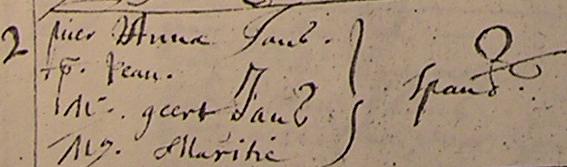 2 puer Anna Jans.
sp. Jean.
M. geert Jans
Mg. Maritie
Spans.